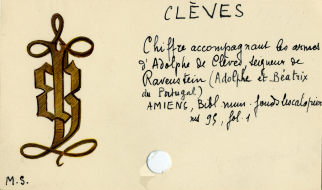 CLÈVES
Chiffre accompagnant les armes
d'Adolphe de Clèves, seigneur de
Ravenstein (Adolphe et Béatrix
du Portugal)
AMIENS, Bibl. mun. fonds Lescalopier
ms 95, fol. 1
M.S.